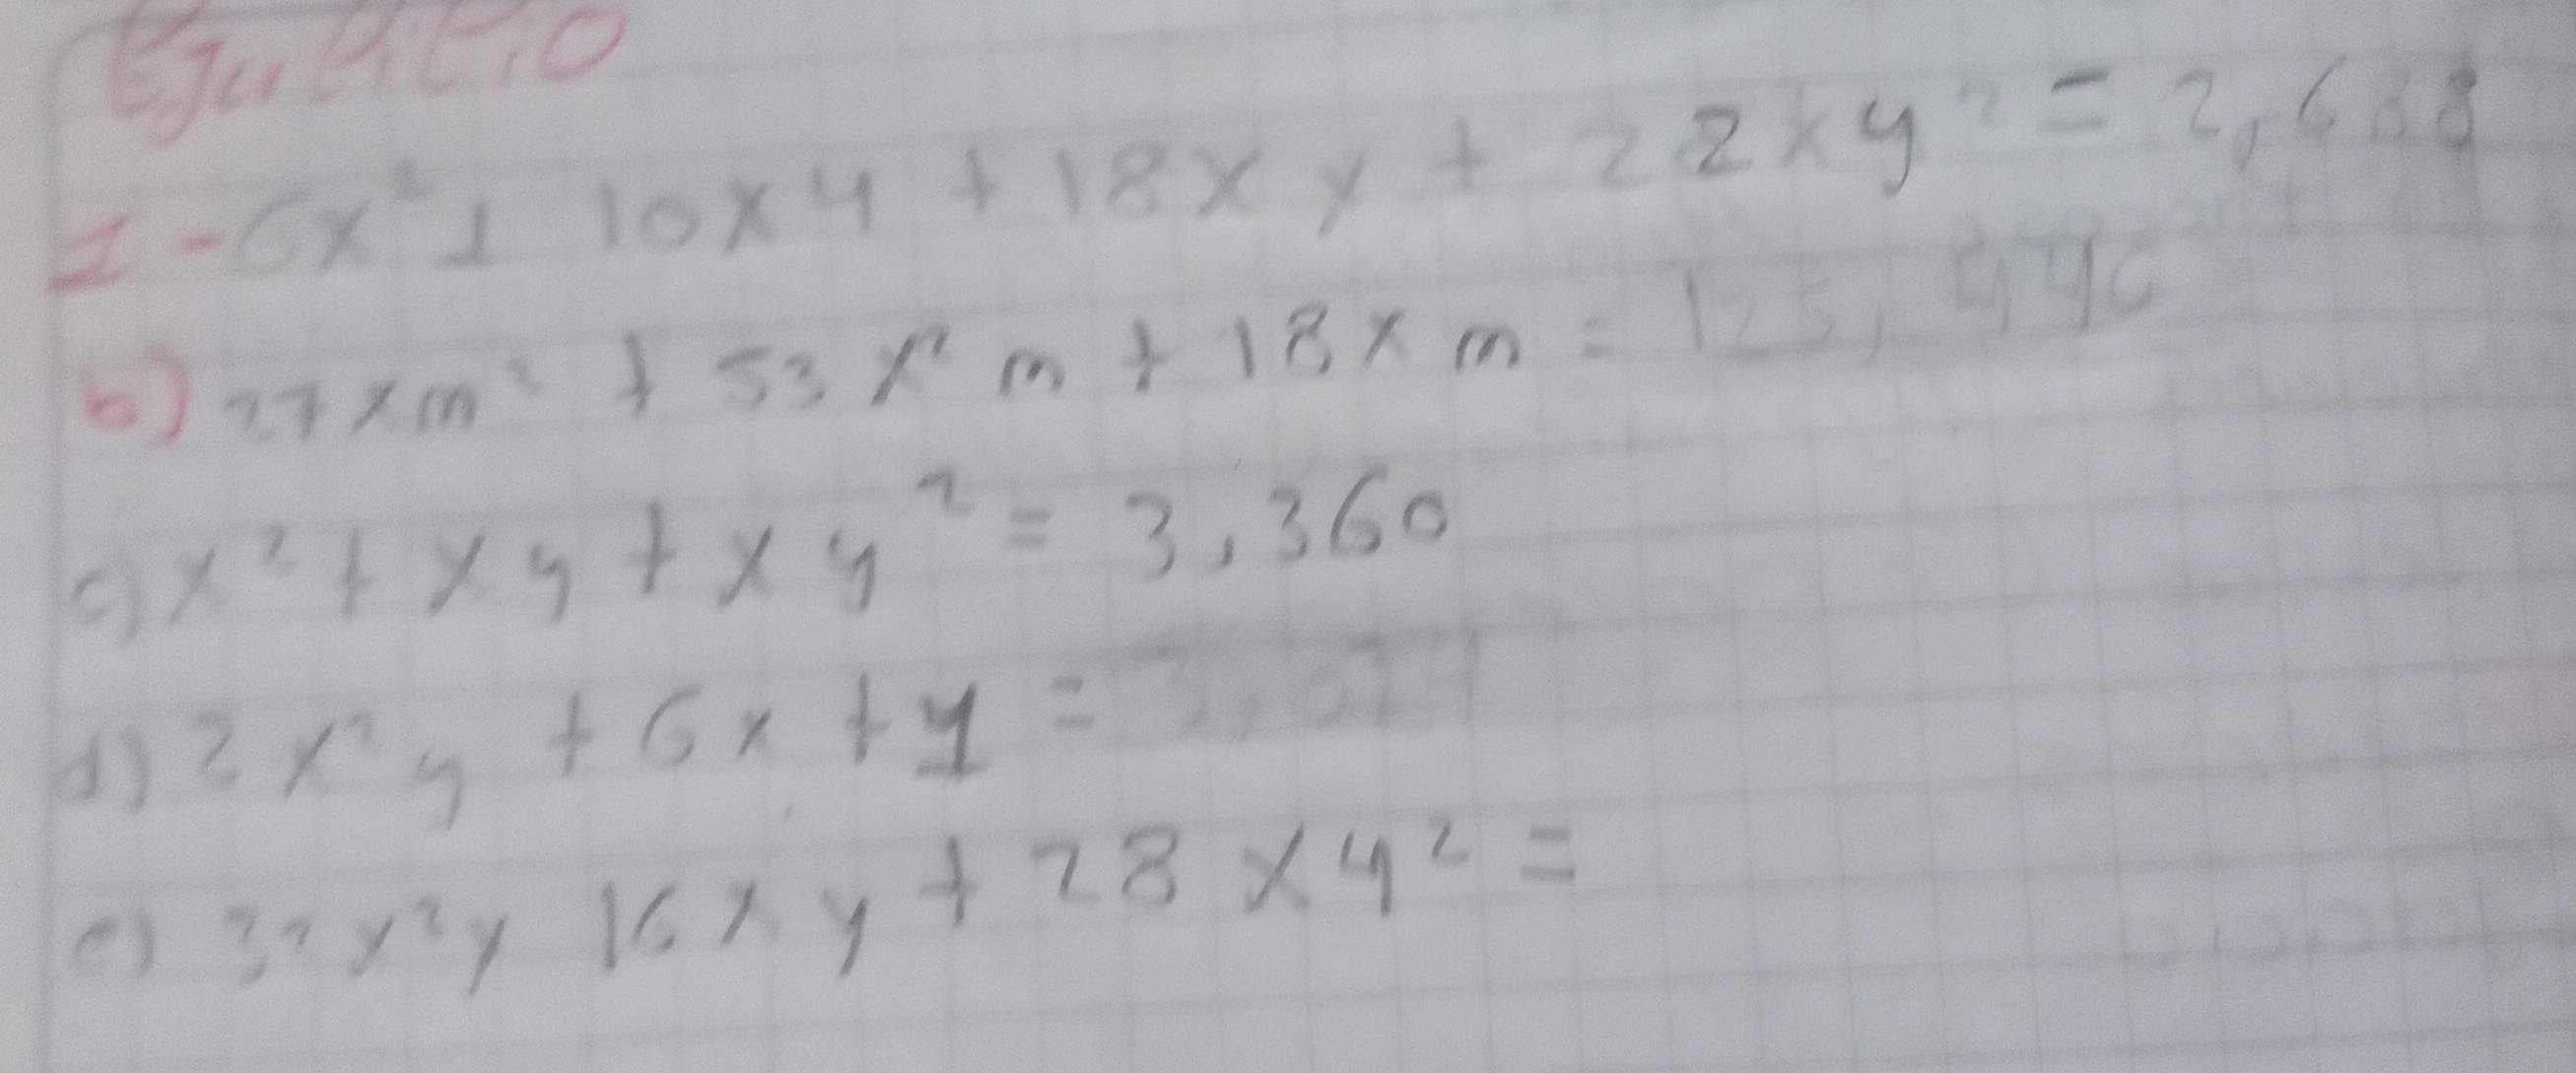 Ejercicio
1 - 6x² + 10xy + 18xy + 22xy² = 2,688
b) 27xm² + 53x²m + 18xm = 125,440
c) x² + xy + xy² = 3,360
d) 2x²y + 6x + y =
e) 32x²y 16xy + 28xy² =